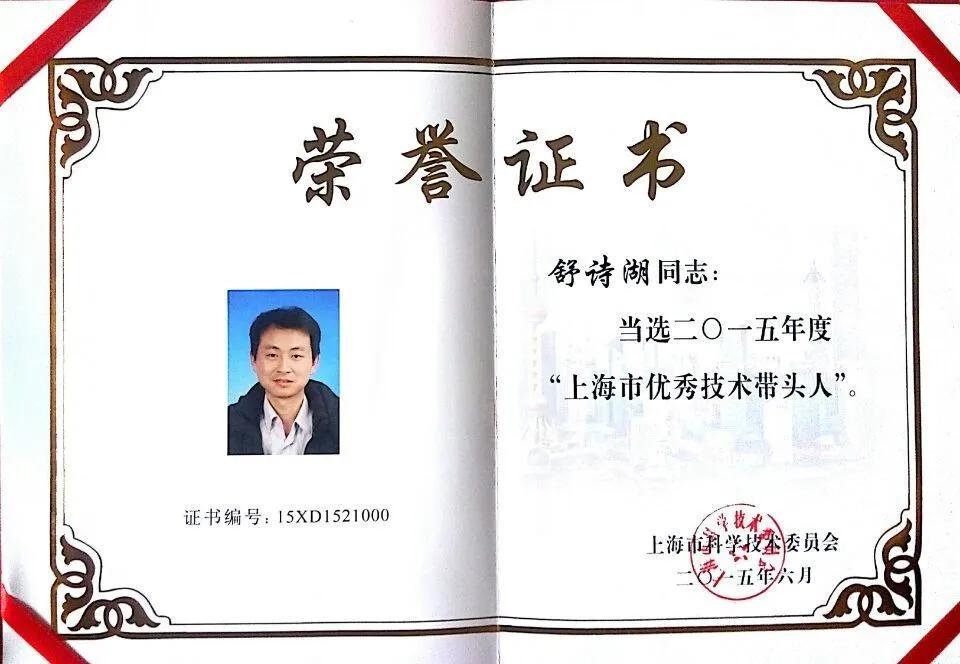 荣誉证书
舒诗湖同志：
当选二〇一五年度
“上海市优秀技术带头人”。
证书编号：15XD1521000
上海市科学技术委员会
二〇一五年六月